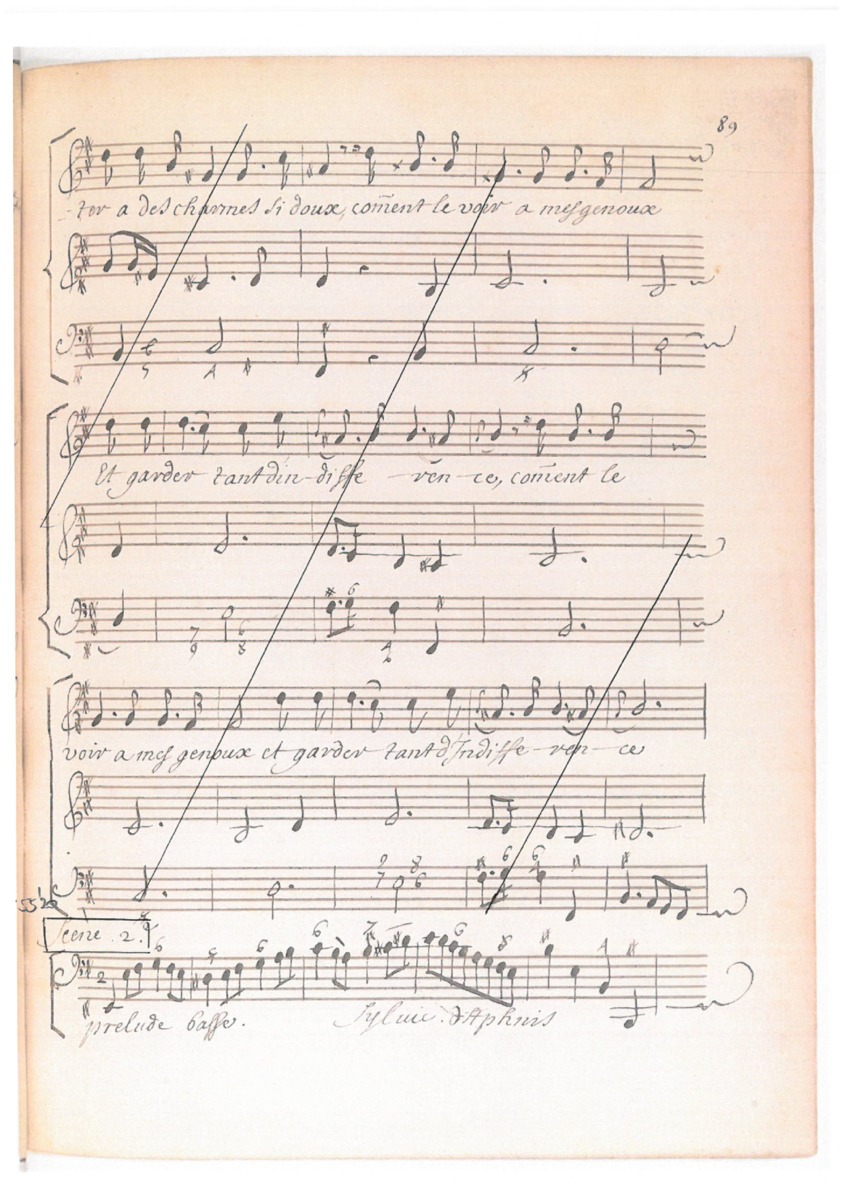 89
-ter a des charmes si doux, com̄ent le voir a mes genoux
Et garder tant din-diffe-ren-ce, com̄ent le
voir a mes genoux et garder tant d'Indiffe-ren-ce
Scene. 2.e
prelude basse. Sylvie. dAphnis